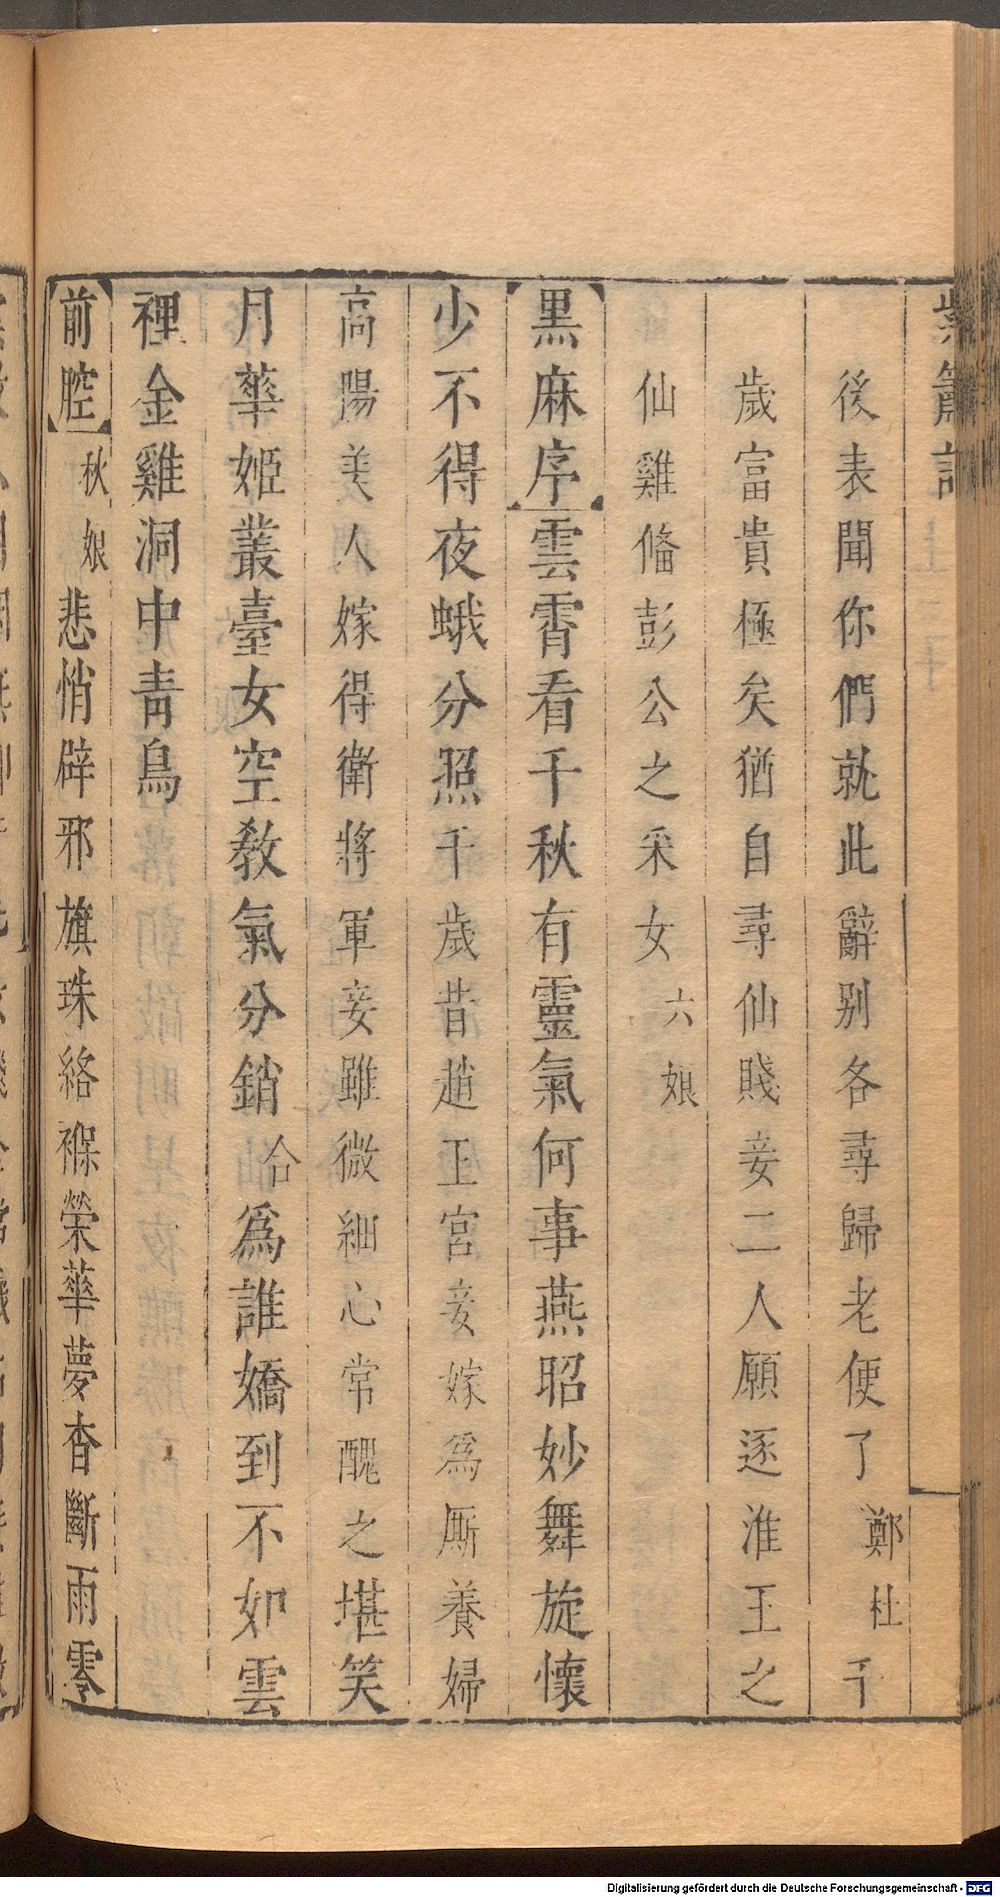 紫簫記
後表聞你們就此辭别各尋歸老便了鄭杜千
歲富貴極矣猶自尋仙賤妾二人願逐淮王之
仙雞偹彭公之采女六娘
黒麻序雲霄看千秋有靈氣何事燕昭妙舞旋懷
少不得夜蛾分照千歲昔趙王宮妾嫁爲厮養婦
高陽美人嫁得衛將軍妾雖微細心常醜之堪笑
月華姬叢臺女空教氣分銷合爲誰嬌到不如雲
裡金雞洞中靑鳥
前腔秋娘悲悄辟邪旗珠絡褓榮華夢杳斷雨零
Digitalisierung gefördert durch die Deutsche Forschungsgemeinschaft - DFG